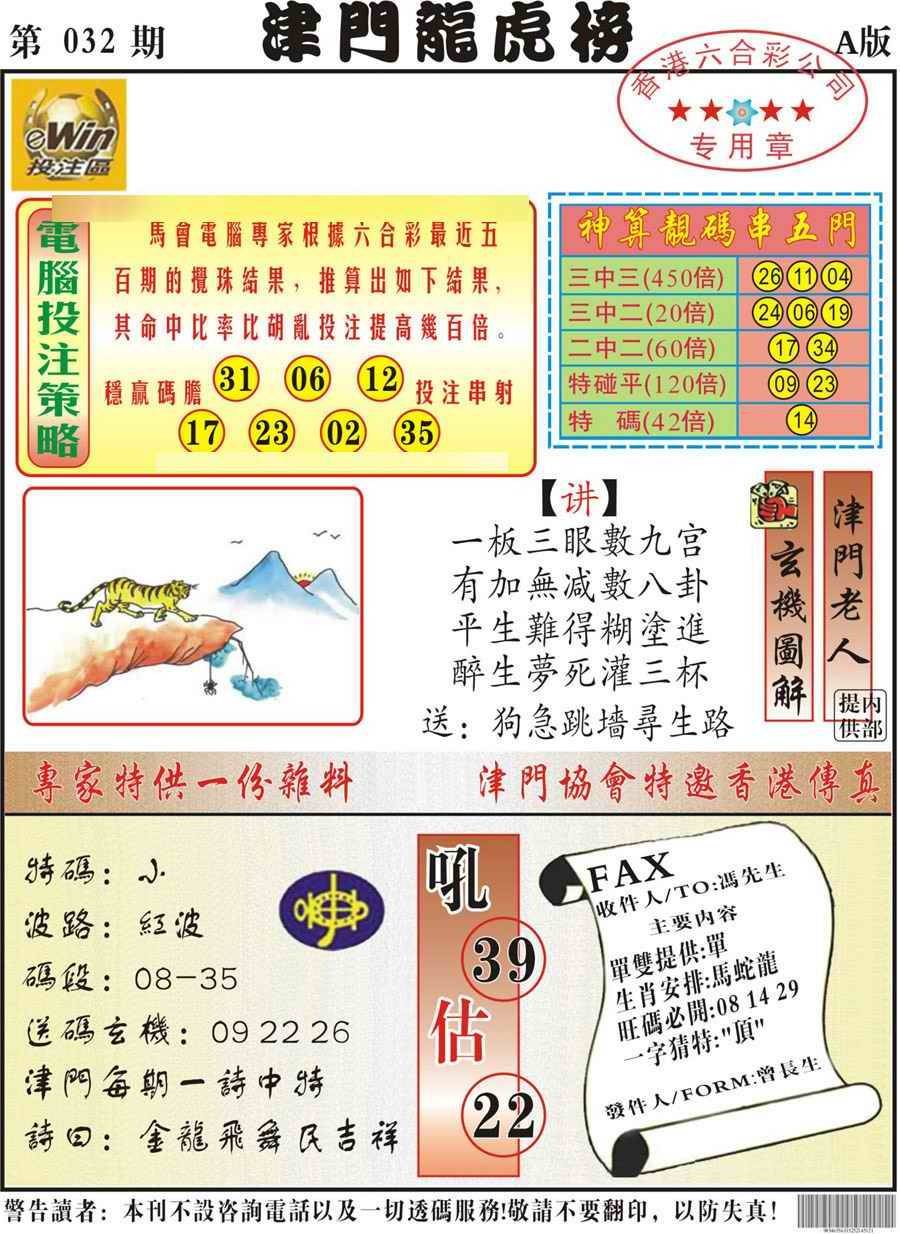 第 032 期
津門龍虎榜
A版
香港六合彩公司
专用章
eWin
投注區
電腦投注策略
馬會電腦專家根據六合彩最近五
百期的攪珠結果，推算出如下結果，
其命中比率比胡亂投注提高幾百倍。
穩贏碼膽 31 06 12 投注串射
17 23 02 35
神算靚碼串五門
三中三(450倍) 26 11 04
三中二(20倍) 24 06 19
二中二(60倍) 17 34
特碰平(120倍) 09 23
特 碼(42倍) 14
【讲】
一板三眼數九宫
有加無减數八卦
平生難得糊塗進
醉生夢死灌三杯
送：狗急跳墻尋生路
玄機圖解
津門老人
提内
供部
專家特供一份雜料
津門協會特邀香港傳真
特碼：小
波路：紅波
碼段：08-35
送碼玄機：09 22 26
津門每期一詩中特
詩曰：金龍飛舞民吉祥
吼
39
估
22
FAX
收件人/TO:馮先生
主要内容
單雙提供:單
生肖安排:馬蛇龍
旺碼必開:08 14 29
一字猜特:"頂"
發件人/FORM:曾長生
警告讀者：本刊不設咨詢電話以及一切透碼服務!敬請不要翻印，以防失真!